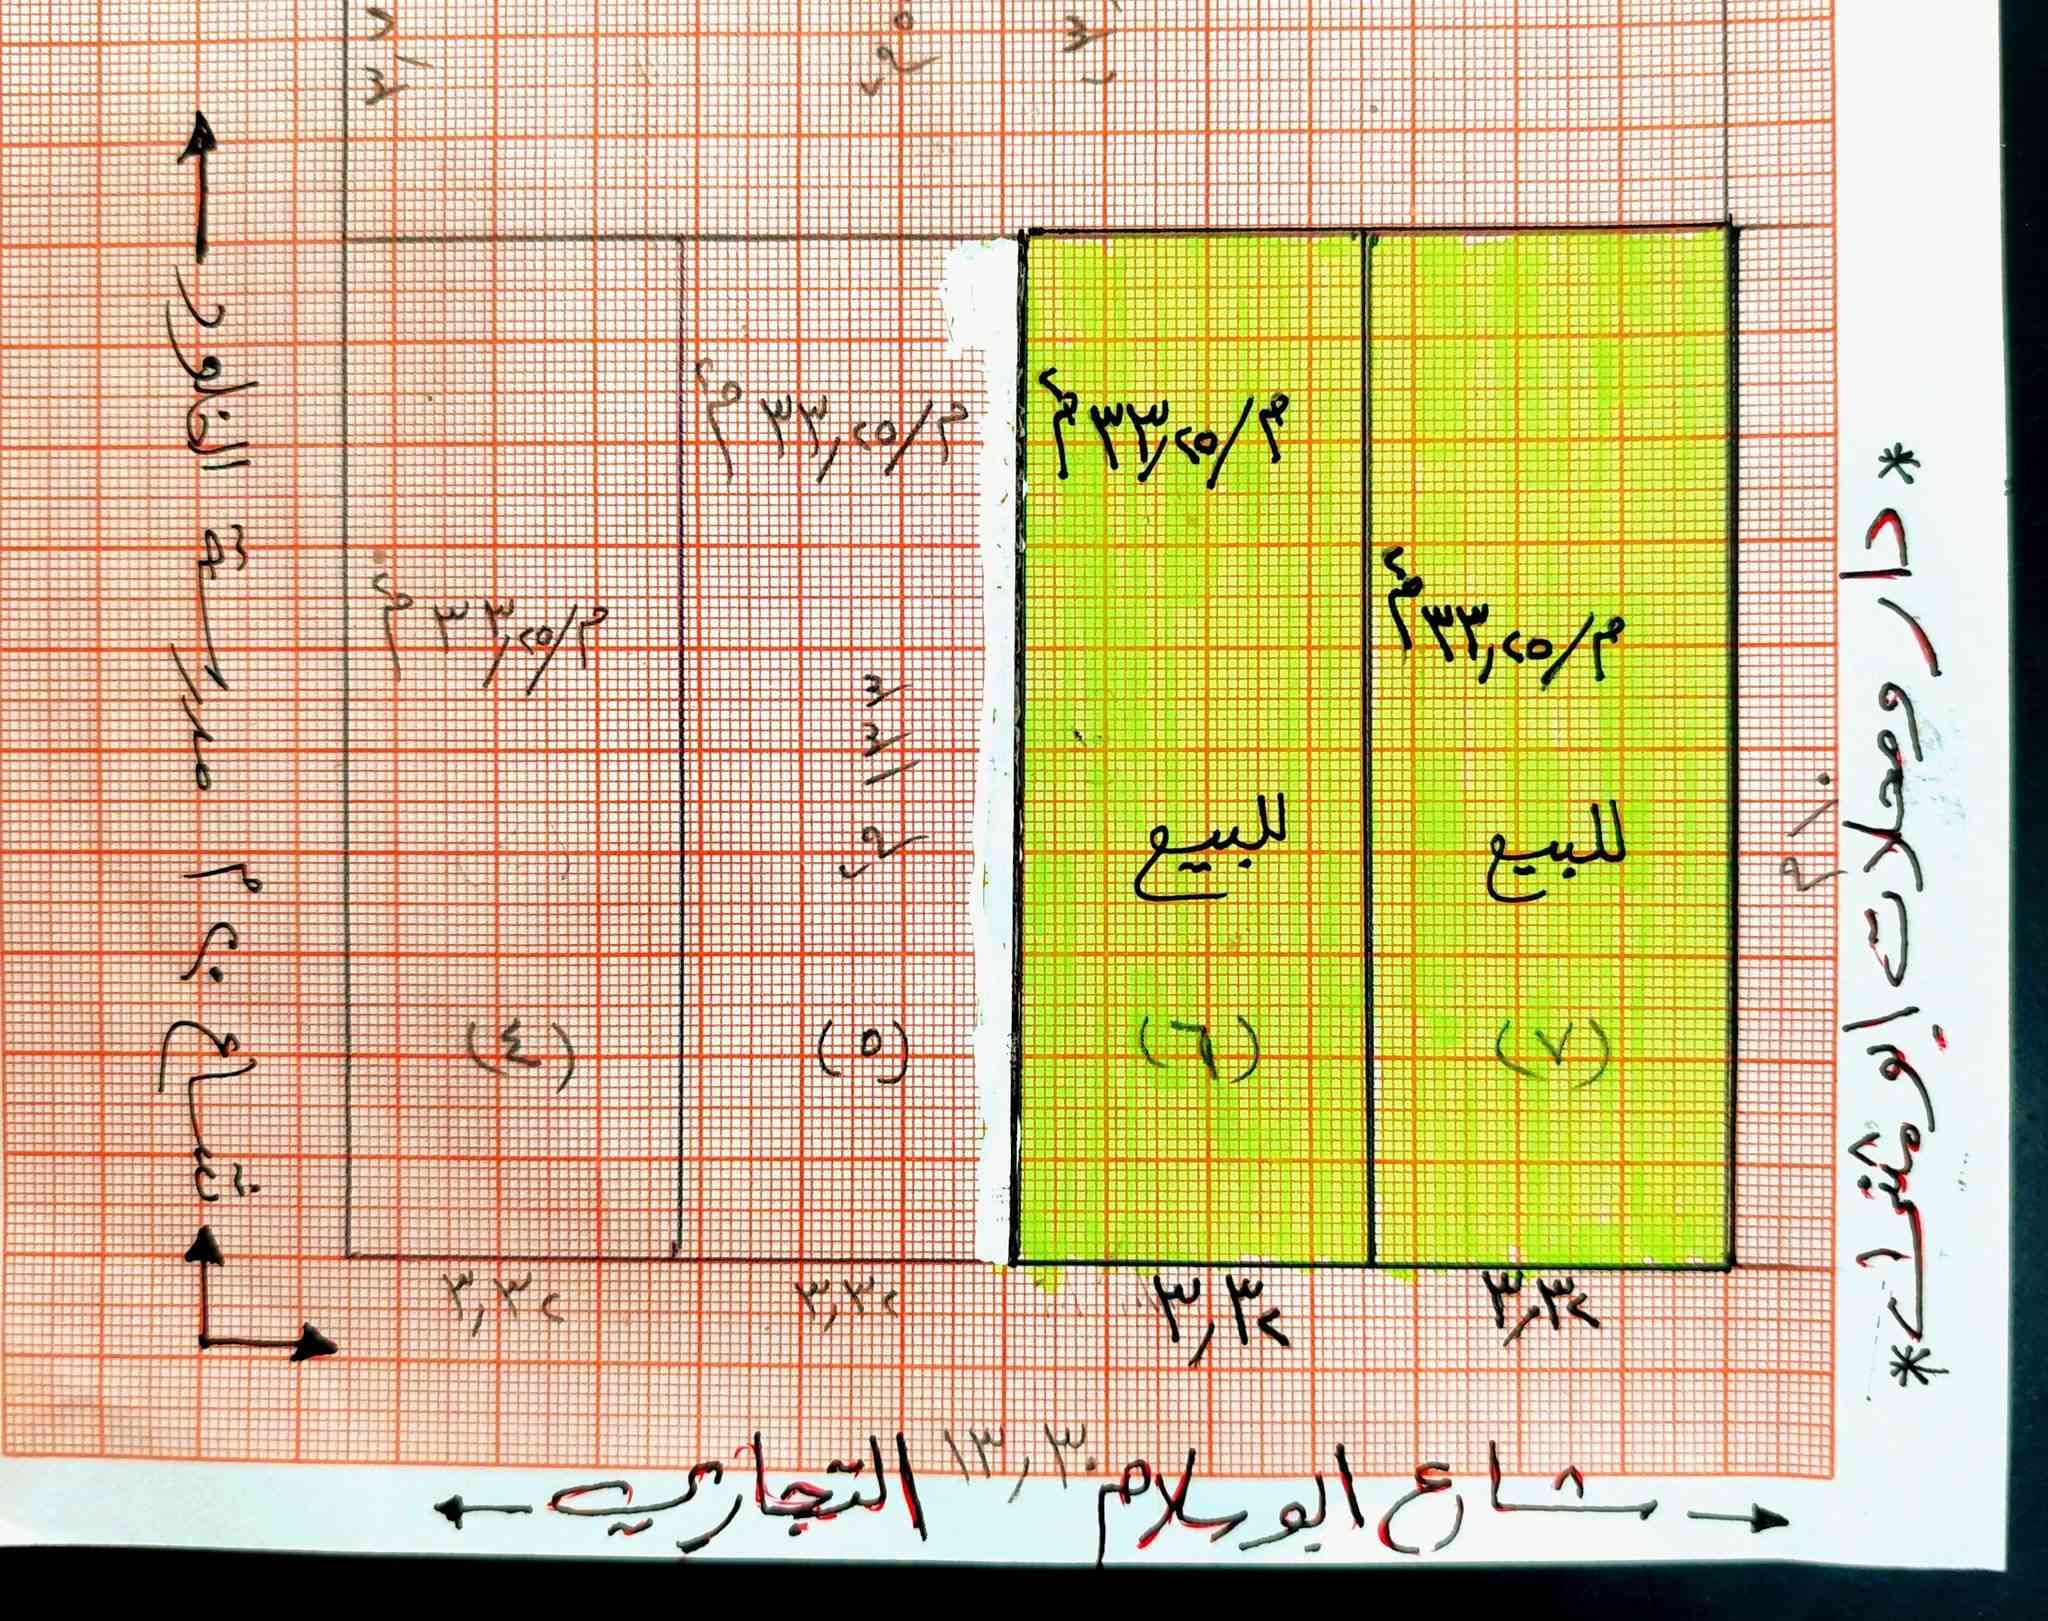 م/٣٣,٢٥ م٢
م/٣٣,٢٥ م٢
م/٣٣,٢٥ م٢
م/٣٣,٢٥ م٢
للبيع
للبيع
(٧)
(٦)
(٥)
(٤)
٣,٣٢
٣,٣٢
٣,٣٢
٣,٣٢
١٣,٣٠
شارع ابو سلام التجاري
شارع ٨ م مدرسة الخلود
* دار ومحلات ابو مشرا *
١٠ م